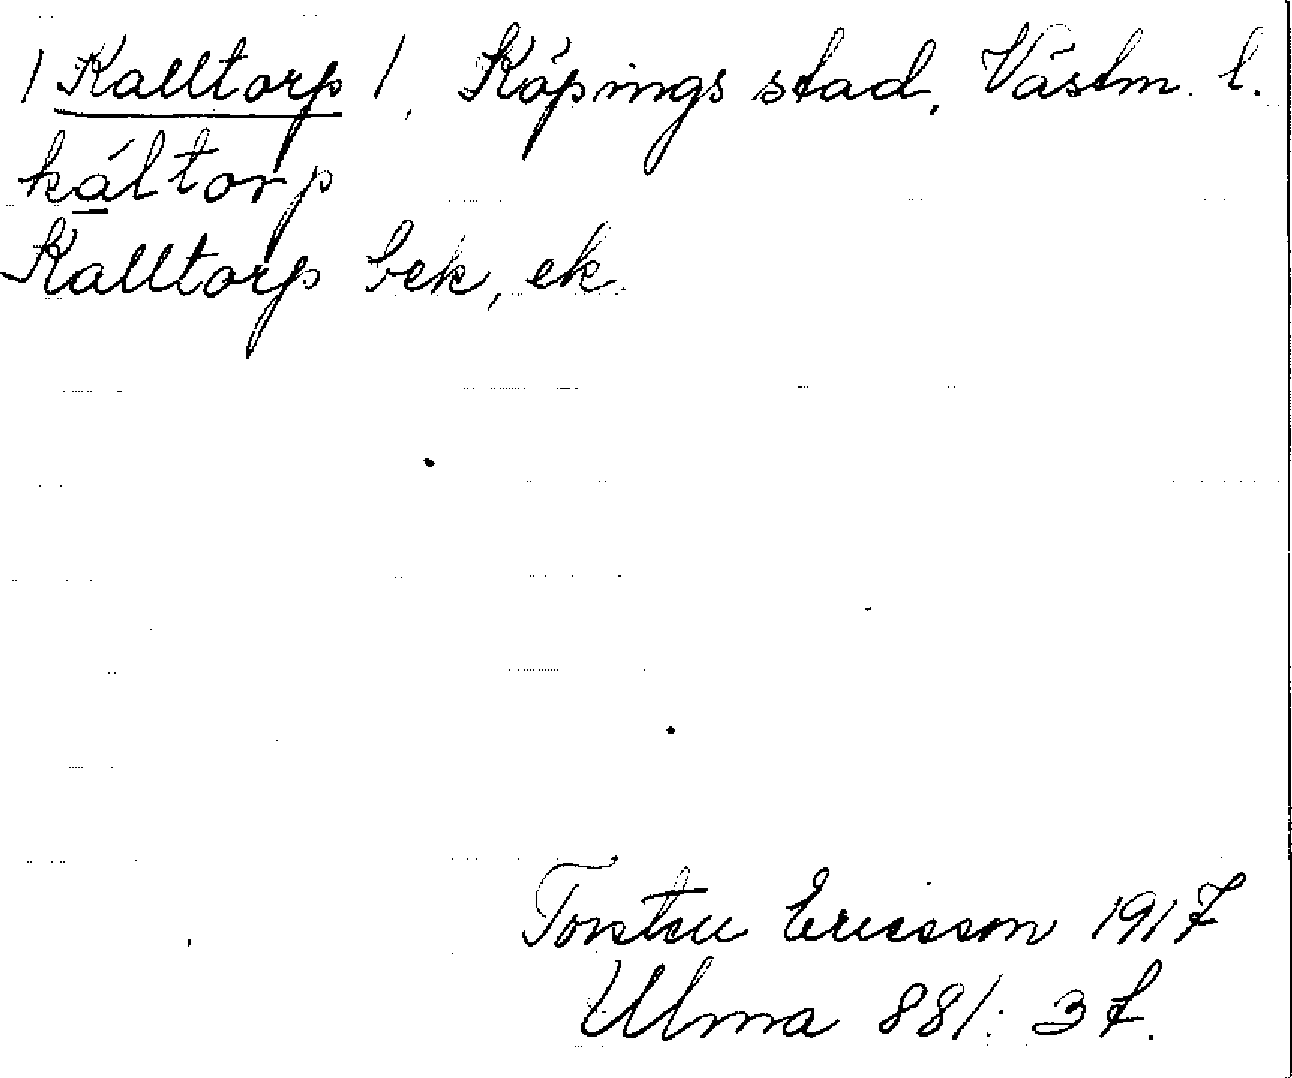 / Kalltorp /, Köpings stad, Västm. l.
káltorp
Kalltorp bek, ek.
Torsten Ericsson 1917
Ulma 881: 37.